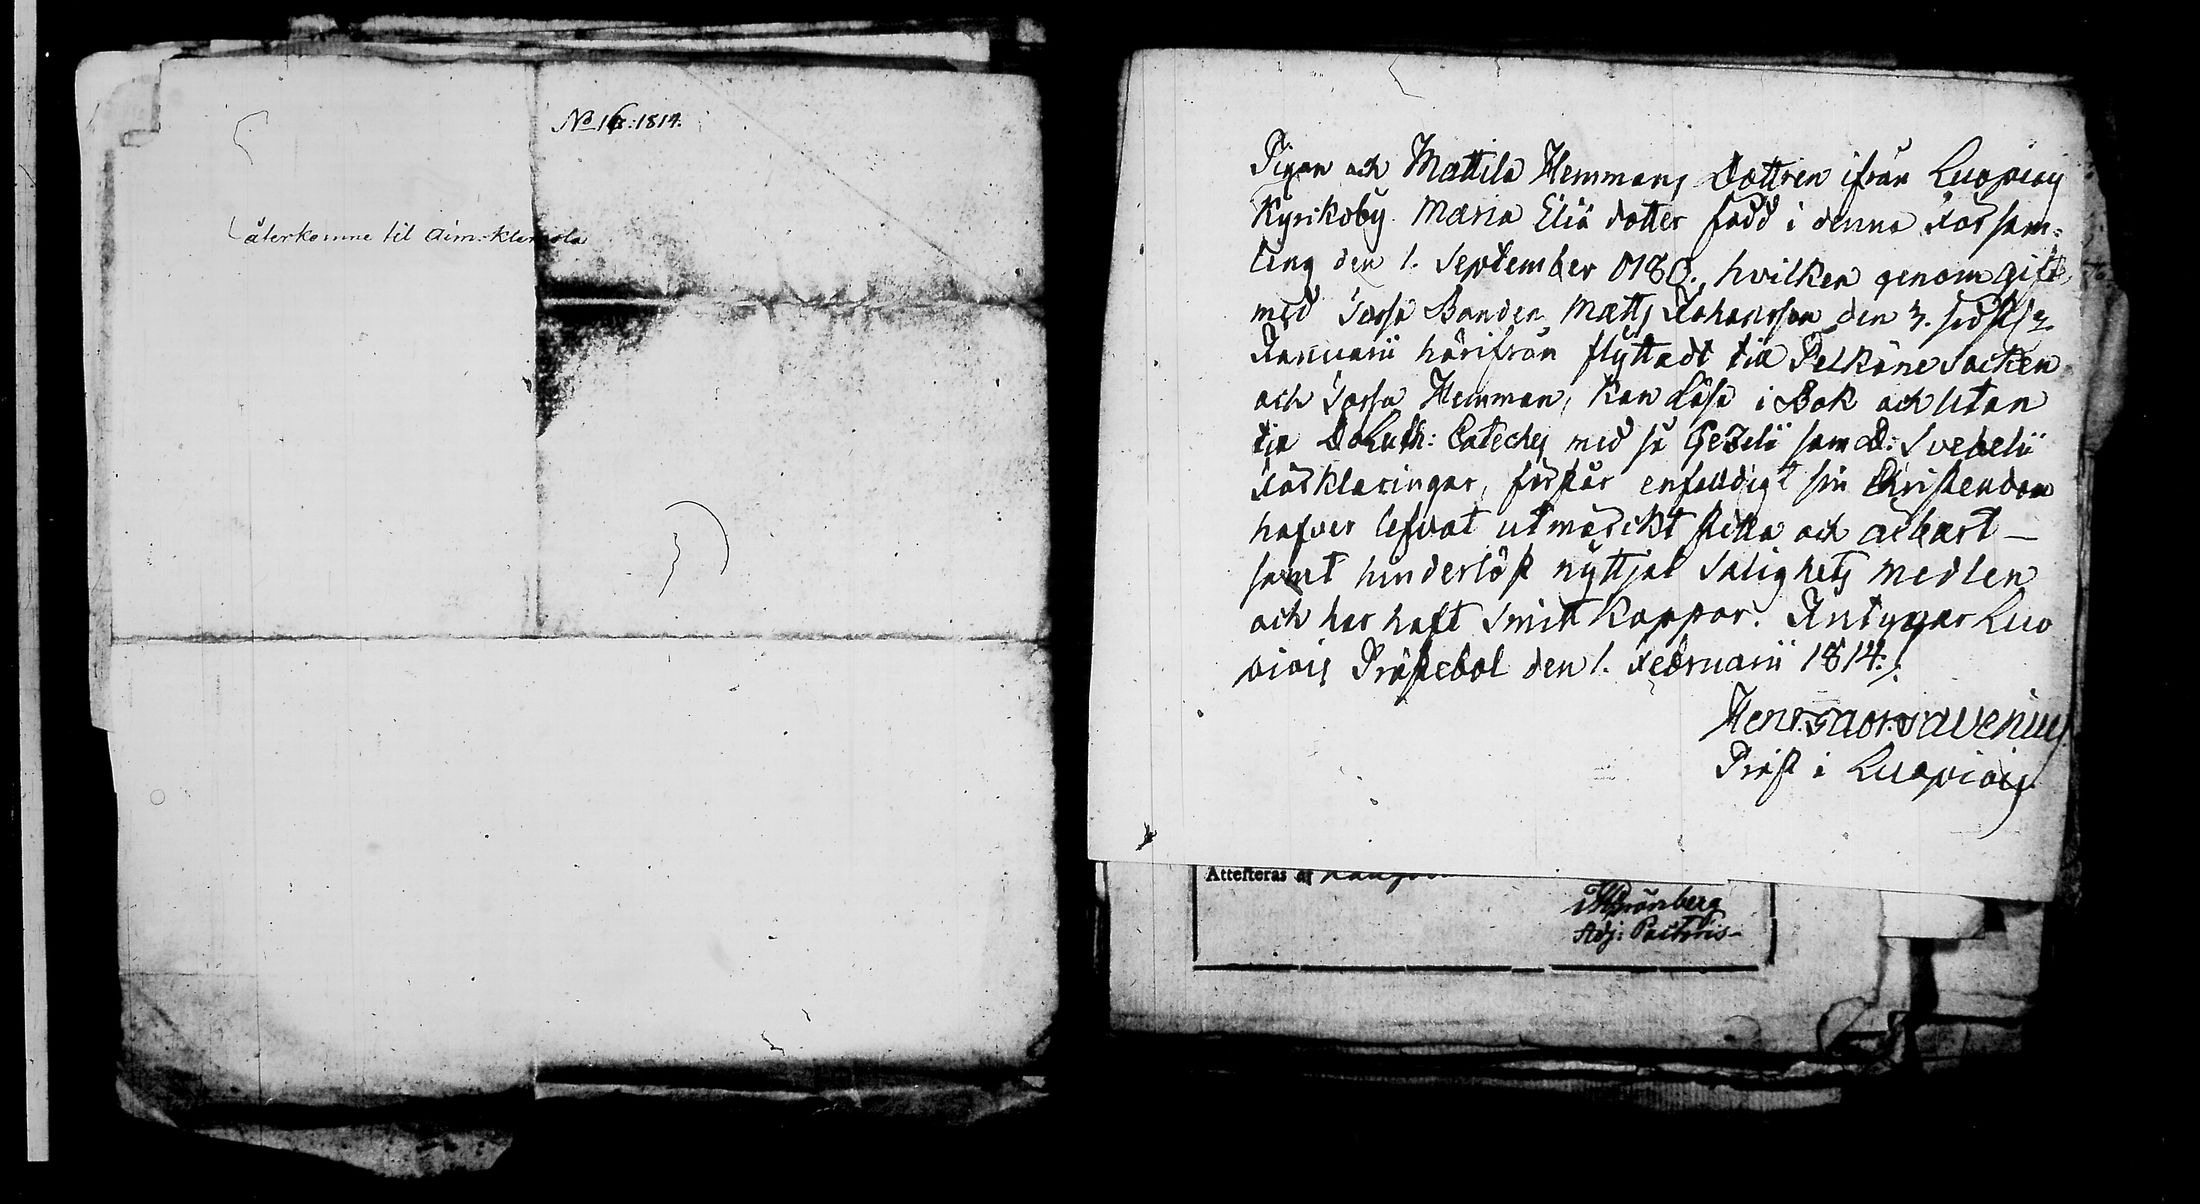 No 16: 1814.
återkomne til
Pigan och Mattila Hemmans Dottren ifrån Luopiois
Kyrikoby Maria Eliæ dotter född i denna Församling
den 1. September hvilken genom gifte
med Jossa Bonden Matts Johansson den 3. sidstl:
Januarii härifrån flyttadt till Pelkäne Socken
och Jossa Hemman, Kan Läsa i Bok och Utan
till Do Luth: Cateches med så Gezelii som D: Svebelii
Förklaringar, förstår enfalldigt sin Christendom
hafver lefvat utmärckt stilla och ärbart —
samt hinderlöst nyttjat Salighets Medlen
och har haft Smitt Koppor. Intygar Luo
piois Prästebol den 1. Februarii 1814./.
Prost i Luopiois
Attesteras af
Grönberg
Adj: Pastoris